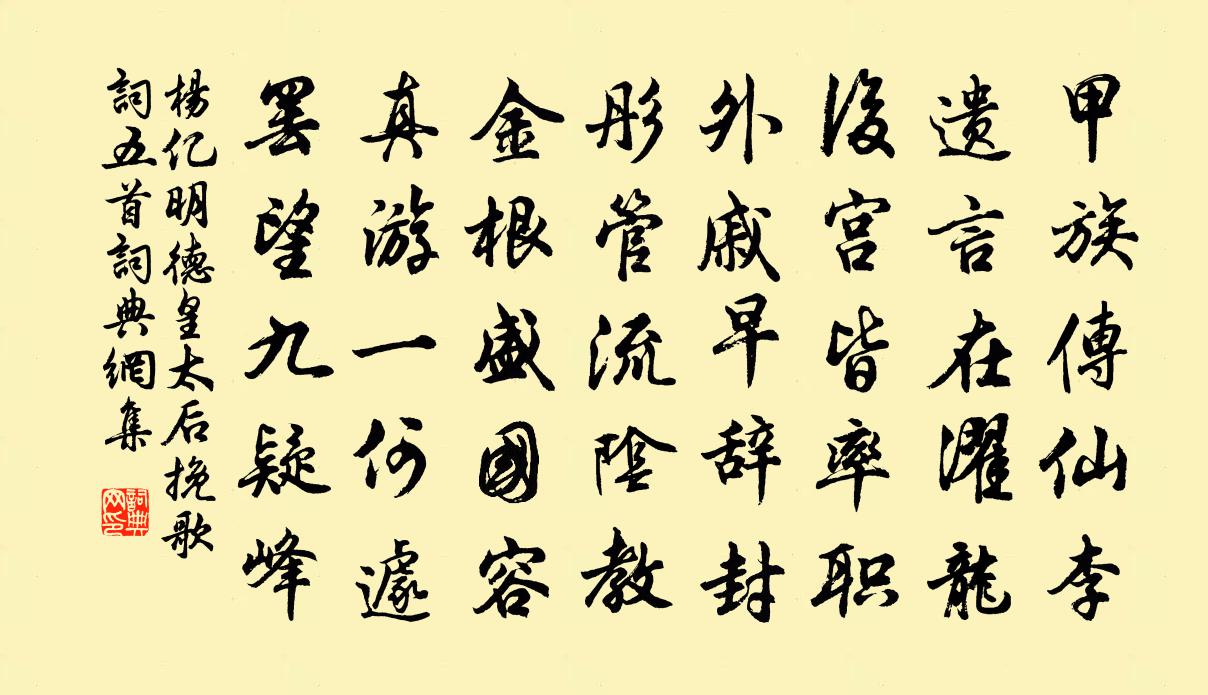 甲族傳仙李
遗言在濯龍
後宫皆率职
外戚早辞封
彤管流陰教
金根盛國容
真游一何遽
罢望九疑峰
楊亿明德皇太后挽歌
詞五首詞典網集
詞典网印